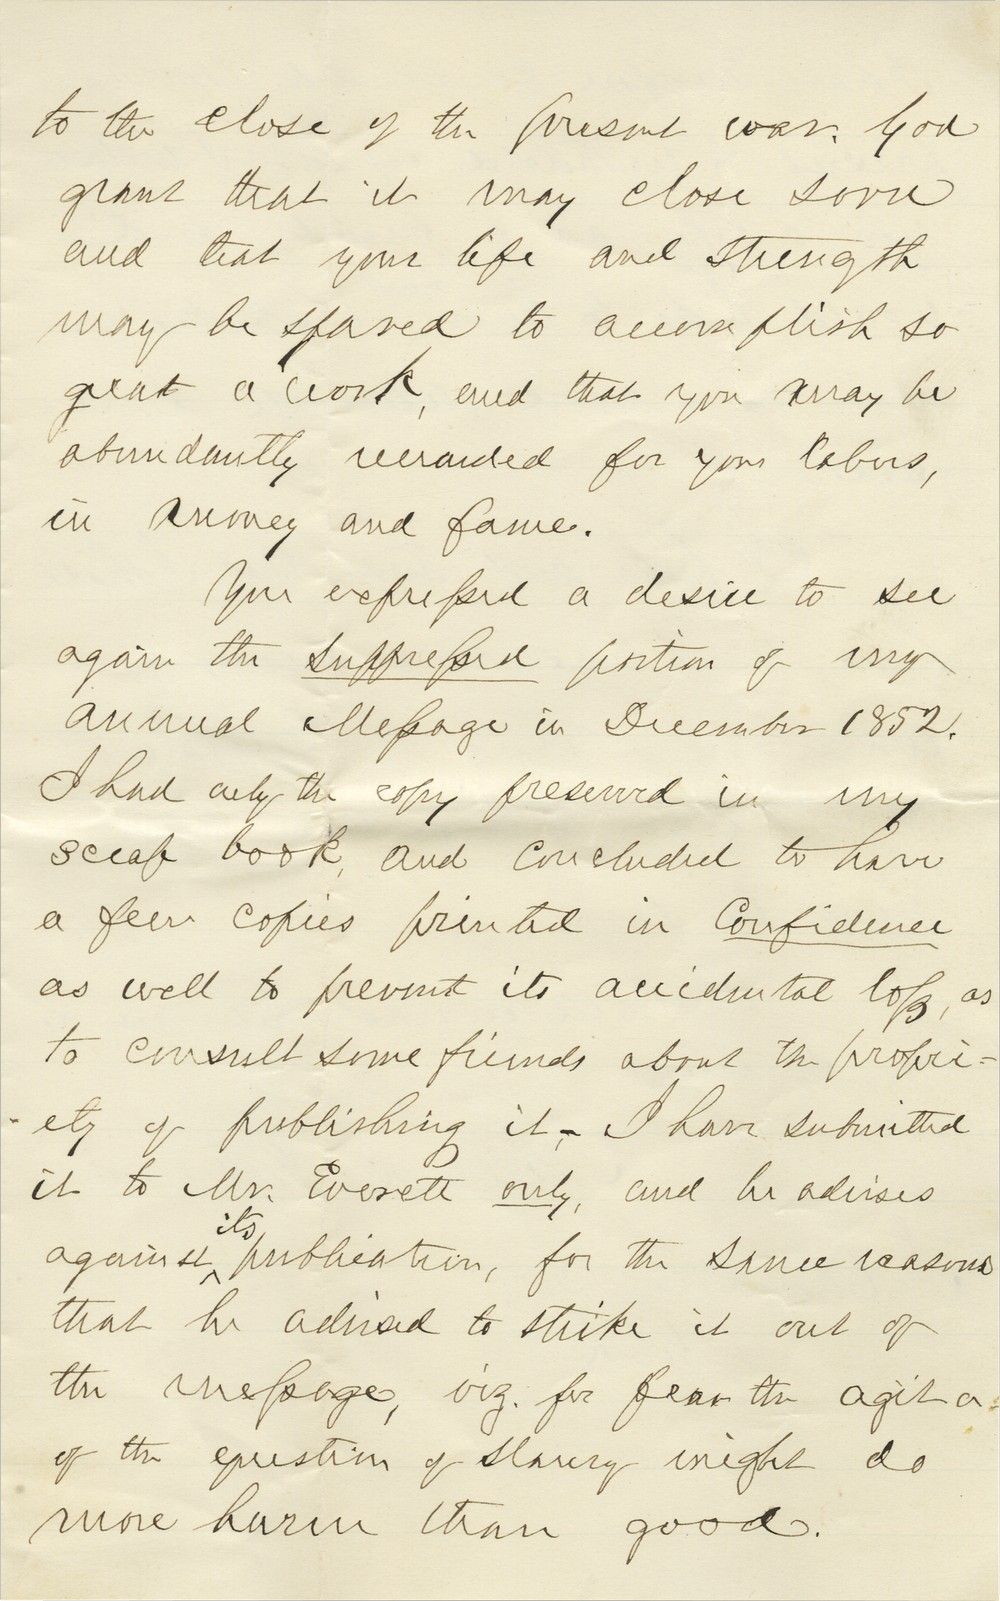 to the close of the present war. God
grant that it may close soon
and that your life and strength
may be spared to accomplish so
great a work, and that you may be
abundantly rewarded for your labors,
in money and fame.
You expressed a desire to see
again the suppressed portion of my
annual Message in December 1852.
I had only the copy preserved in my
scrap book, and concluded to have
a few copies printed in Confidence
as well to prevent its accidental loss, as
to consult some friends about the propri-
-ety of publishing it, - I have submitted
it to Mr. Everett only, and he advises
against its publication, for the same reasons
that he advised to strike it out of
the message, viz. for fear the agita-
of the question of slavery might do
more harm than good.